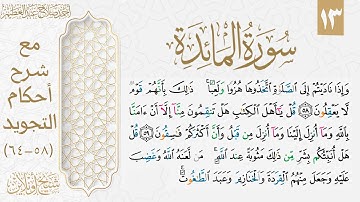 ١٣
سورة المائدة
أحمد صلاح عبد العظيم
مع
شرح
أحكام
التجويد
(٥٨-٦٤)
وَإِذَا نَادَيْتُمْ إِلَى الصَّلَاةِ اتَّخَذُوهَا هُزُوًا وَلَعِبًا ۚ ذَٰلِكَ بِأَنَّهُمْ قَوْمٌ
لَّا يَعْقِلُونَ ٥٨ قُلْ يَا أَهْلَ الْكِتَابِ هَلْ تَنقِمُونَ مِنَّا إِلَّا أَنْ آمَنَّا
بِاللَّهِ وَمَا أُنزِلَ إِلَيْنَا وَمَا أُنزِلَ مِن قَبْلُ وَأَنَّ أَكْثَرَكُمْ فَاسِقُونَ ٥٩ قُلْ
هَلْ أُنَبِّئُكُم بِشَرٍّ مِّن ذَٰلِكَ مَثُوبَةً عِندَ اللَّهِ ۚ مَن لَّعَنَهُ اللَّهُ وَغَضِبَ
عَلَيْهِ وَجَعَلَ مِنْهُمُ الْقِرَدَةَ وَالْخَنَازِيرَ وَعَبَدَ الطَّاغُوتَ ۚ